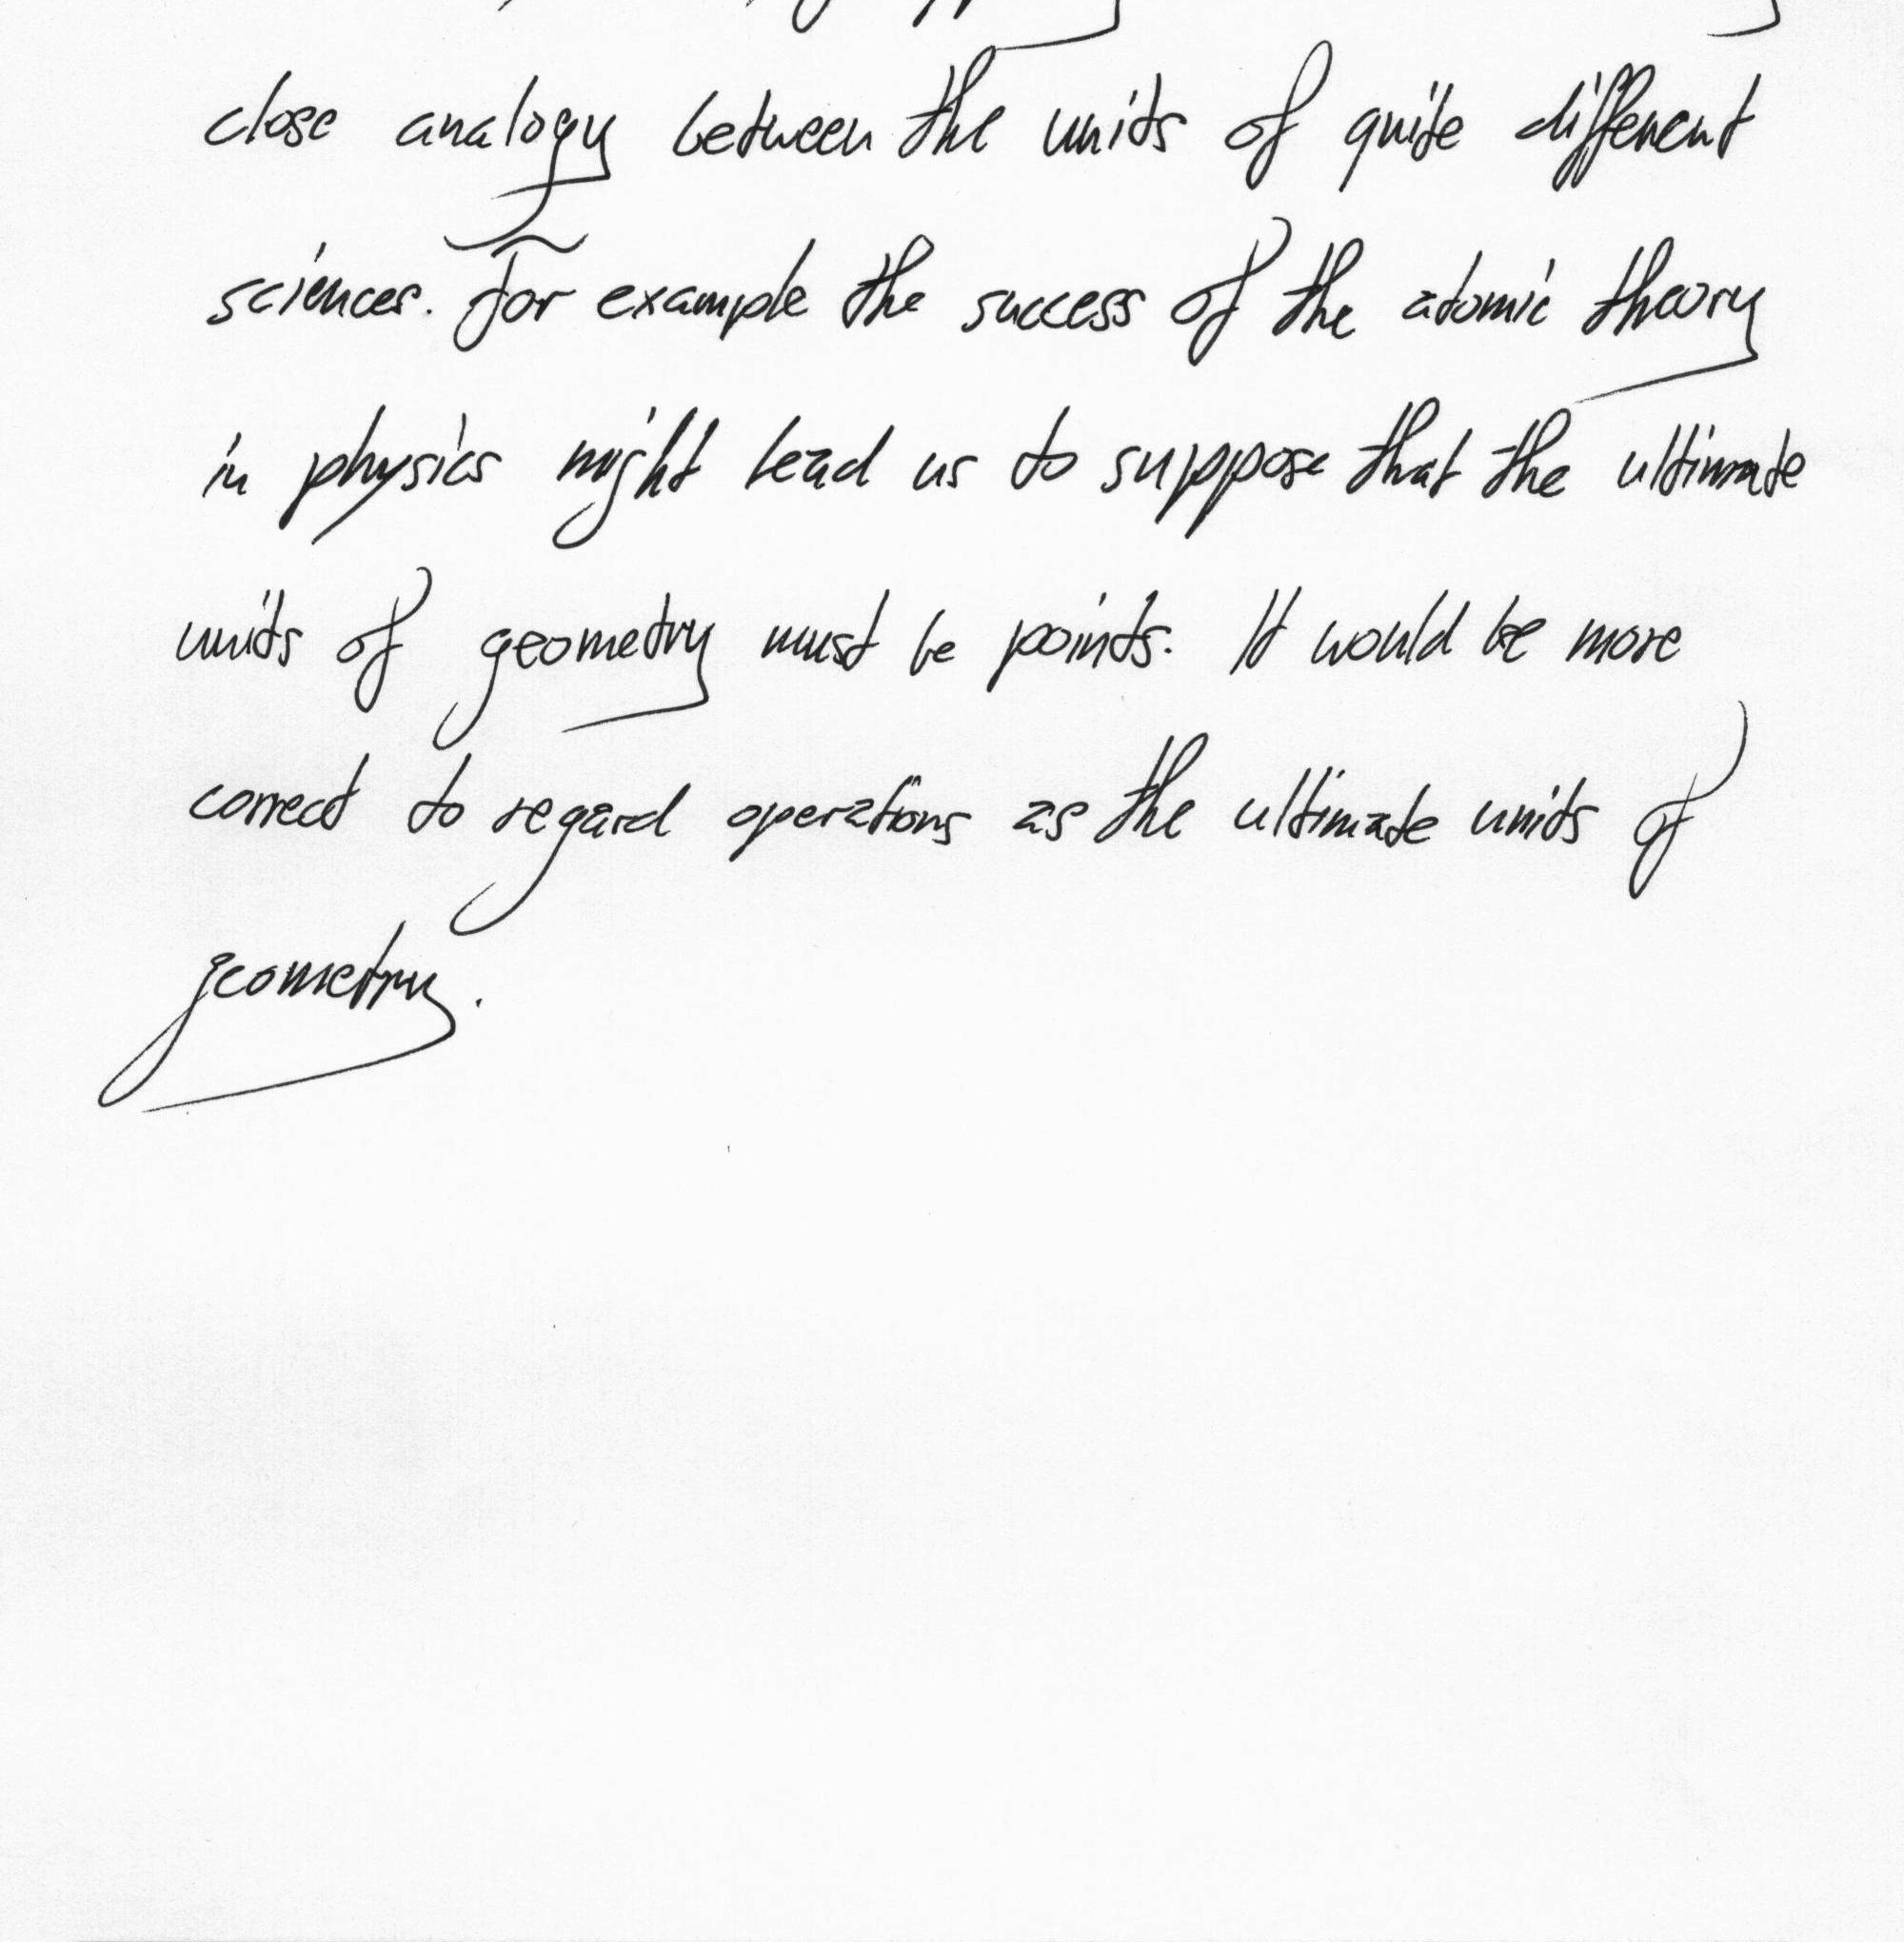 close analogy between the units of quite different
sciences. For example the success of the atomic theory
in physics might lead us to suppose that the ultimate
units of geometry must be points. It would be more
correct to regard operations as the ultimate units of
geometry.